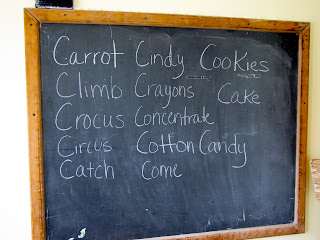 Carrot Cindy Cookies
Climb Crayons Cake
Crocus Concentrate
Circus Cotton Candy
Catch Come